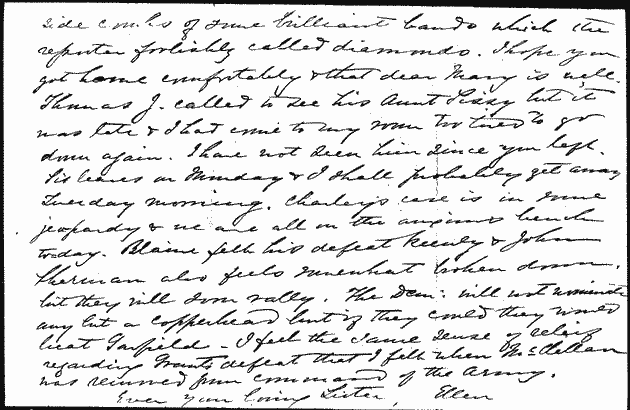 side combs of some brilliant bands which the
reporter foolishly called diamonds. I hope you
got home comfortably & that dear Mary is well.
Thomas J. called to see his Aunt Sissy but it
was late & I had come to my room too tired to go
down again. I have not seen him since you left.
Sis leaves on Monday & I shall probably get away
Tuesday morning. Charley's case is in some
jeopardy & we are all on the anxious bench
to-day. Blaine felt his defeat keenly & John
Sherman also feels somewhat broken down.
but they will soon rally. The Dem: will not nominate
any but a Copperhead but if they could they would
beat Garfield - I feel the same sense of relief
regarding Grant's defeat that I felt when McClellan
was removed from command of the Army.
Ever your loving Sister, Ellen